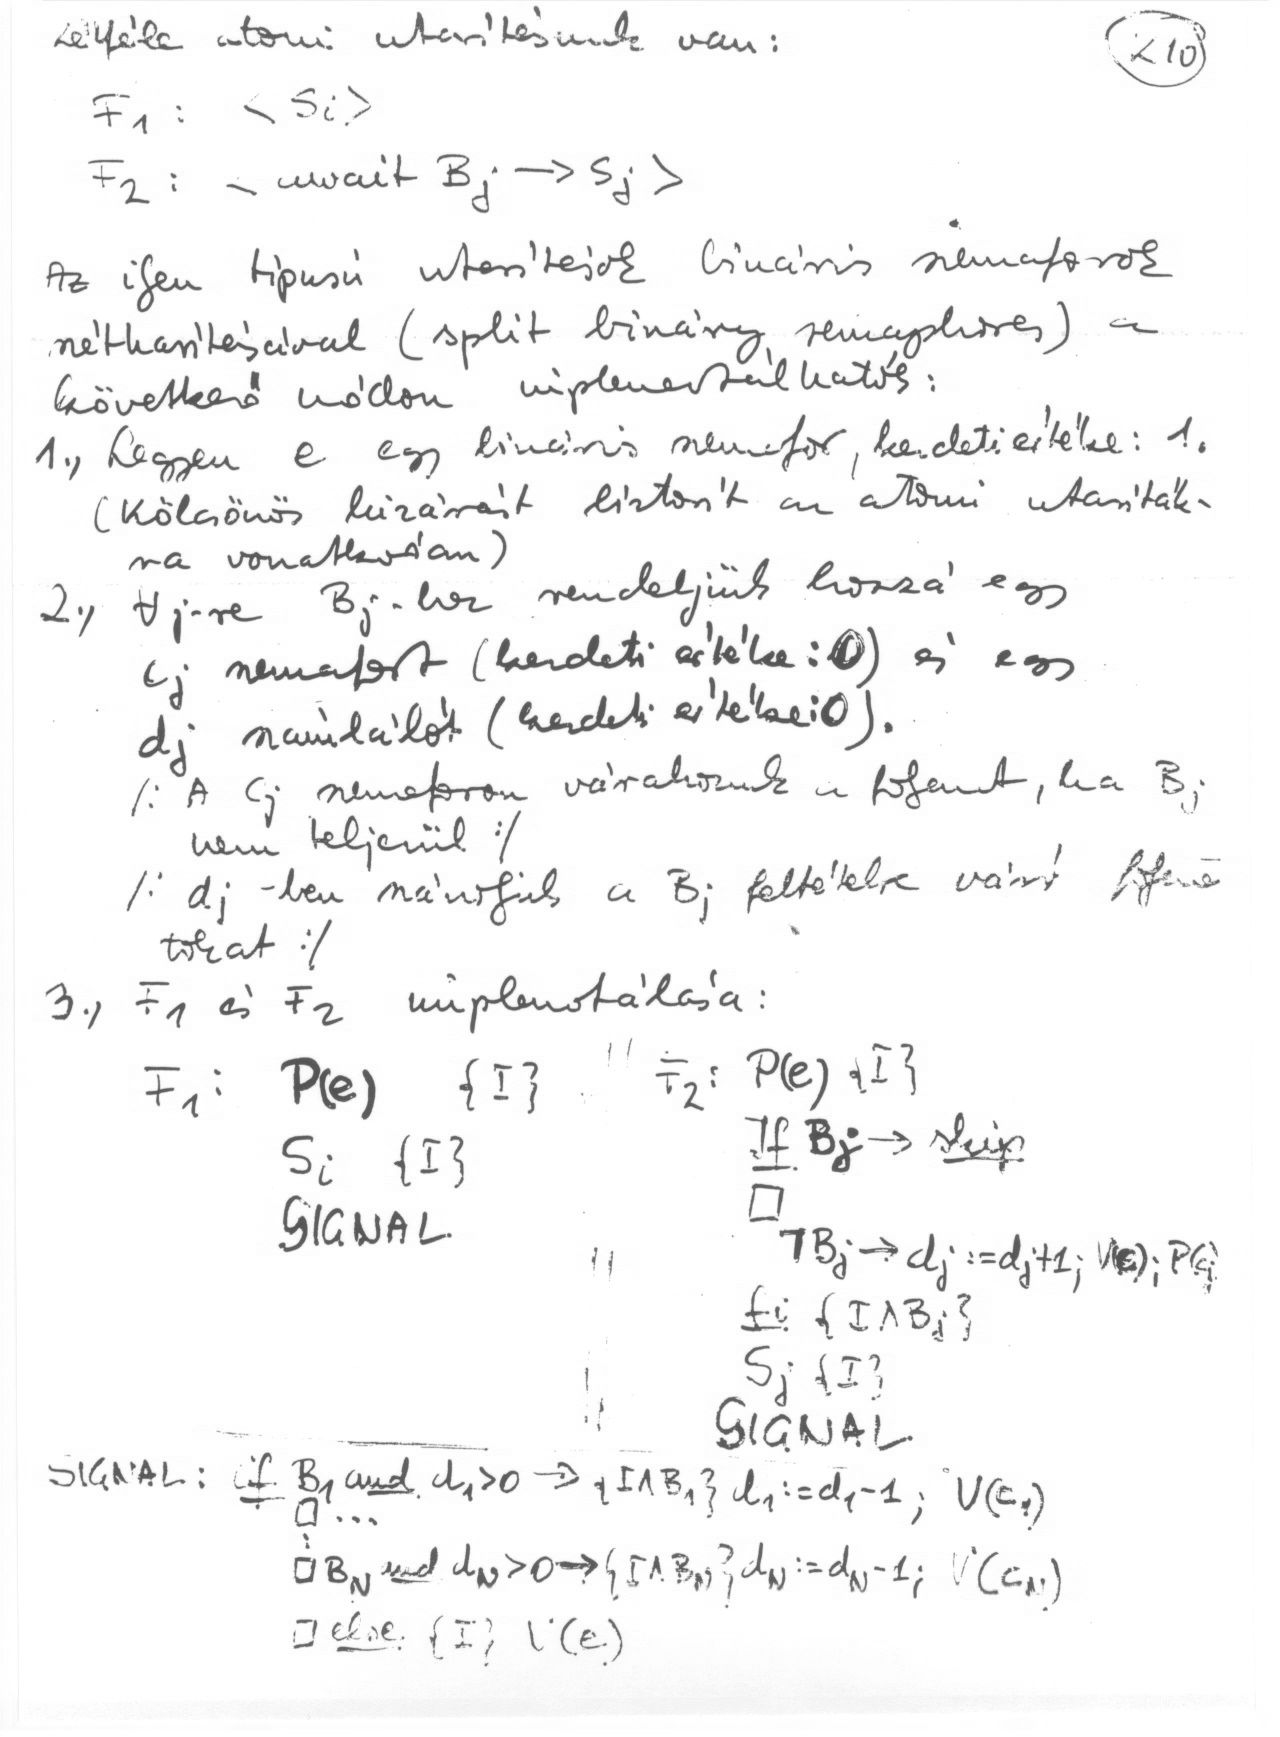 Kétféle atomi utasításunk van:
210
F1: <Si>
F2: <await Bj → Sj>
Az ilyen típusú utasítások bináris szemaforok
széthasításával (split binary semaphores) a
következő módon implementálhatók:
1., Legyen e egy bináris szemafor, kezdeti értéke: 1.
(Kölcsönös kizárást biztosít az atomi utasítások-
ra vonatkozóan)
2., ∀j-re Bj-hez rendeljünk hozzá egy
cj szemafort (kezdeti értéke: 0) és egy
dj számlálót (kezdeti értéke: 0).
/: A cj szemaforon várakozunk a folyamat, ha Bj
nem teljesül :/
/: dj -ben számoljuk a Bj feltételre váró folyama
tokat :/
3., F1 és F2 implementálása:
F1: P(e) {I}
Si {I}
SIGNAL
F2: P(e) {I}
If Bj → skip
□
¬Bj → dj := dj+1; V(e); P(cj)
fi {I∧Bj}
Sj {I}
SIGNAL
SIGNAL: if B1 and d1>0 → {I∧B1} d1:=d1-1; V(c1)
□ ...
□ BN and dN>0 → {I∧BN} dN:=dN-1; V(cN)
□ else {I} V(e)